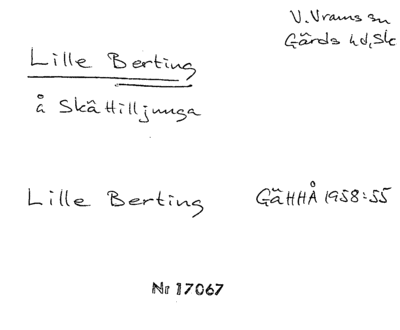 V. Vrams sn
Gärds hd, Sk
Lille Berting
å Skättilljunga
Lille Berting GäHHÅ 1958:55
Nr 17067